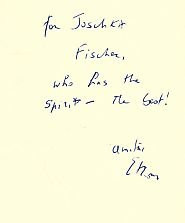 for Joschka
Fischer,
who has the
spirit — the best!
Amitai